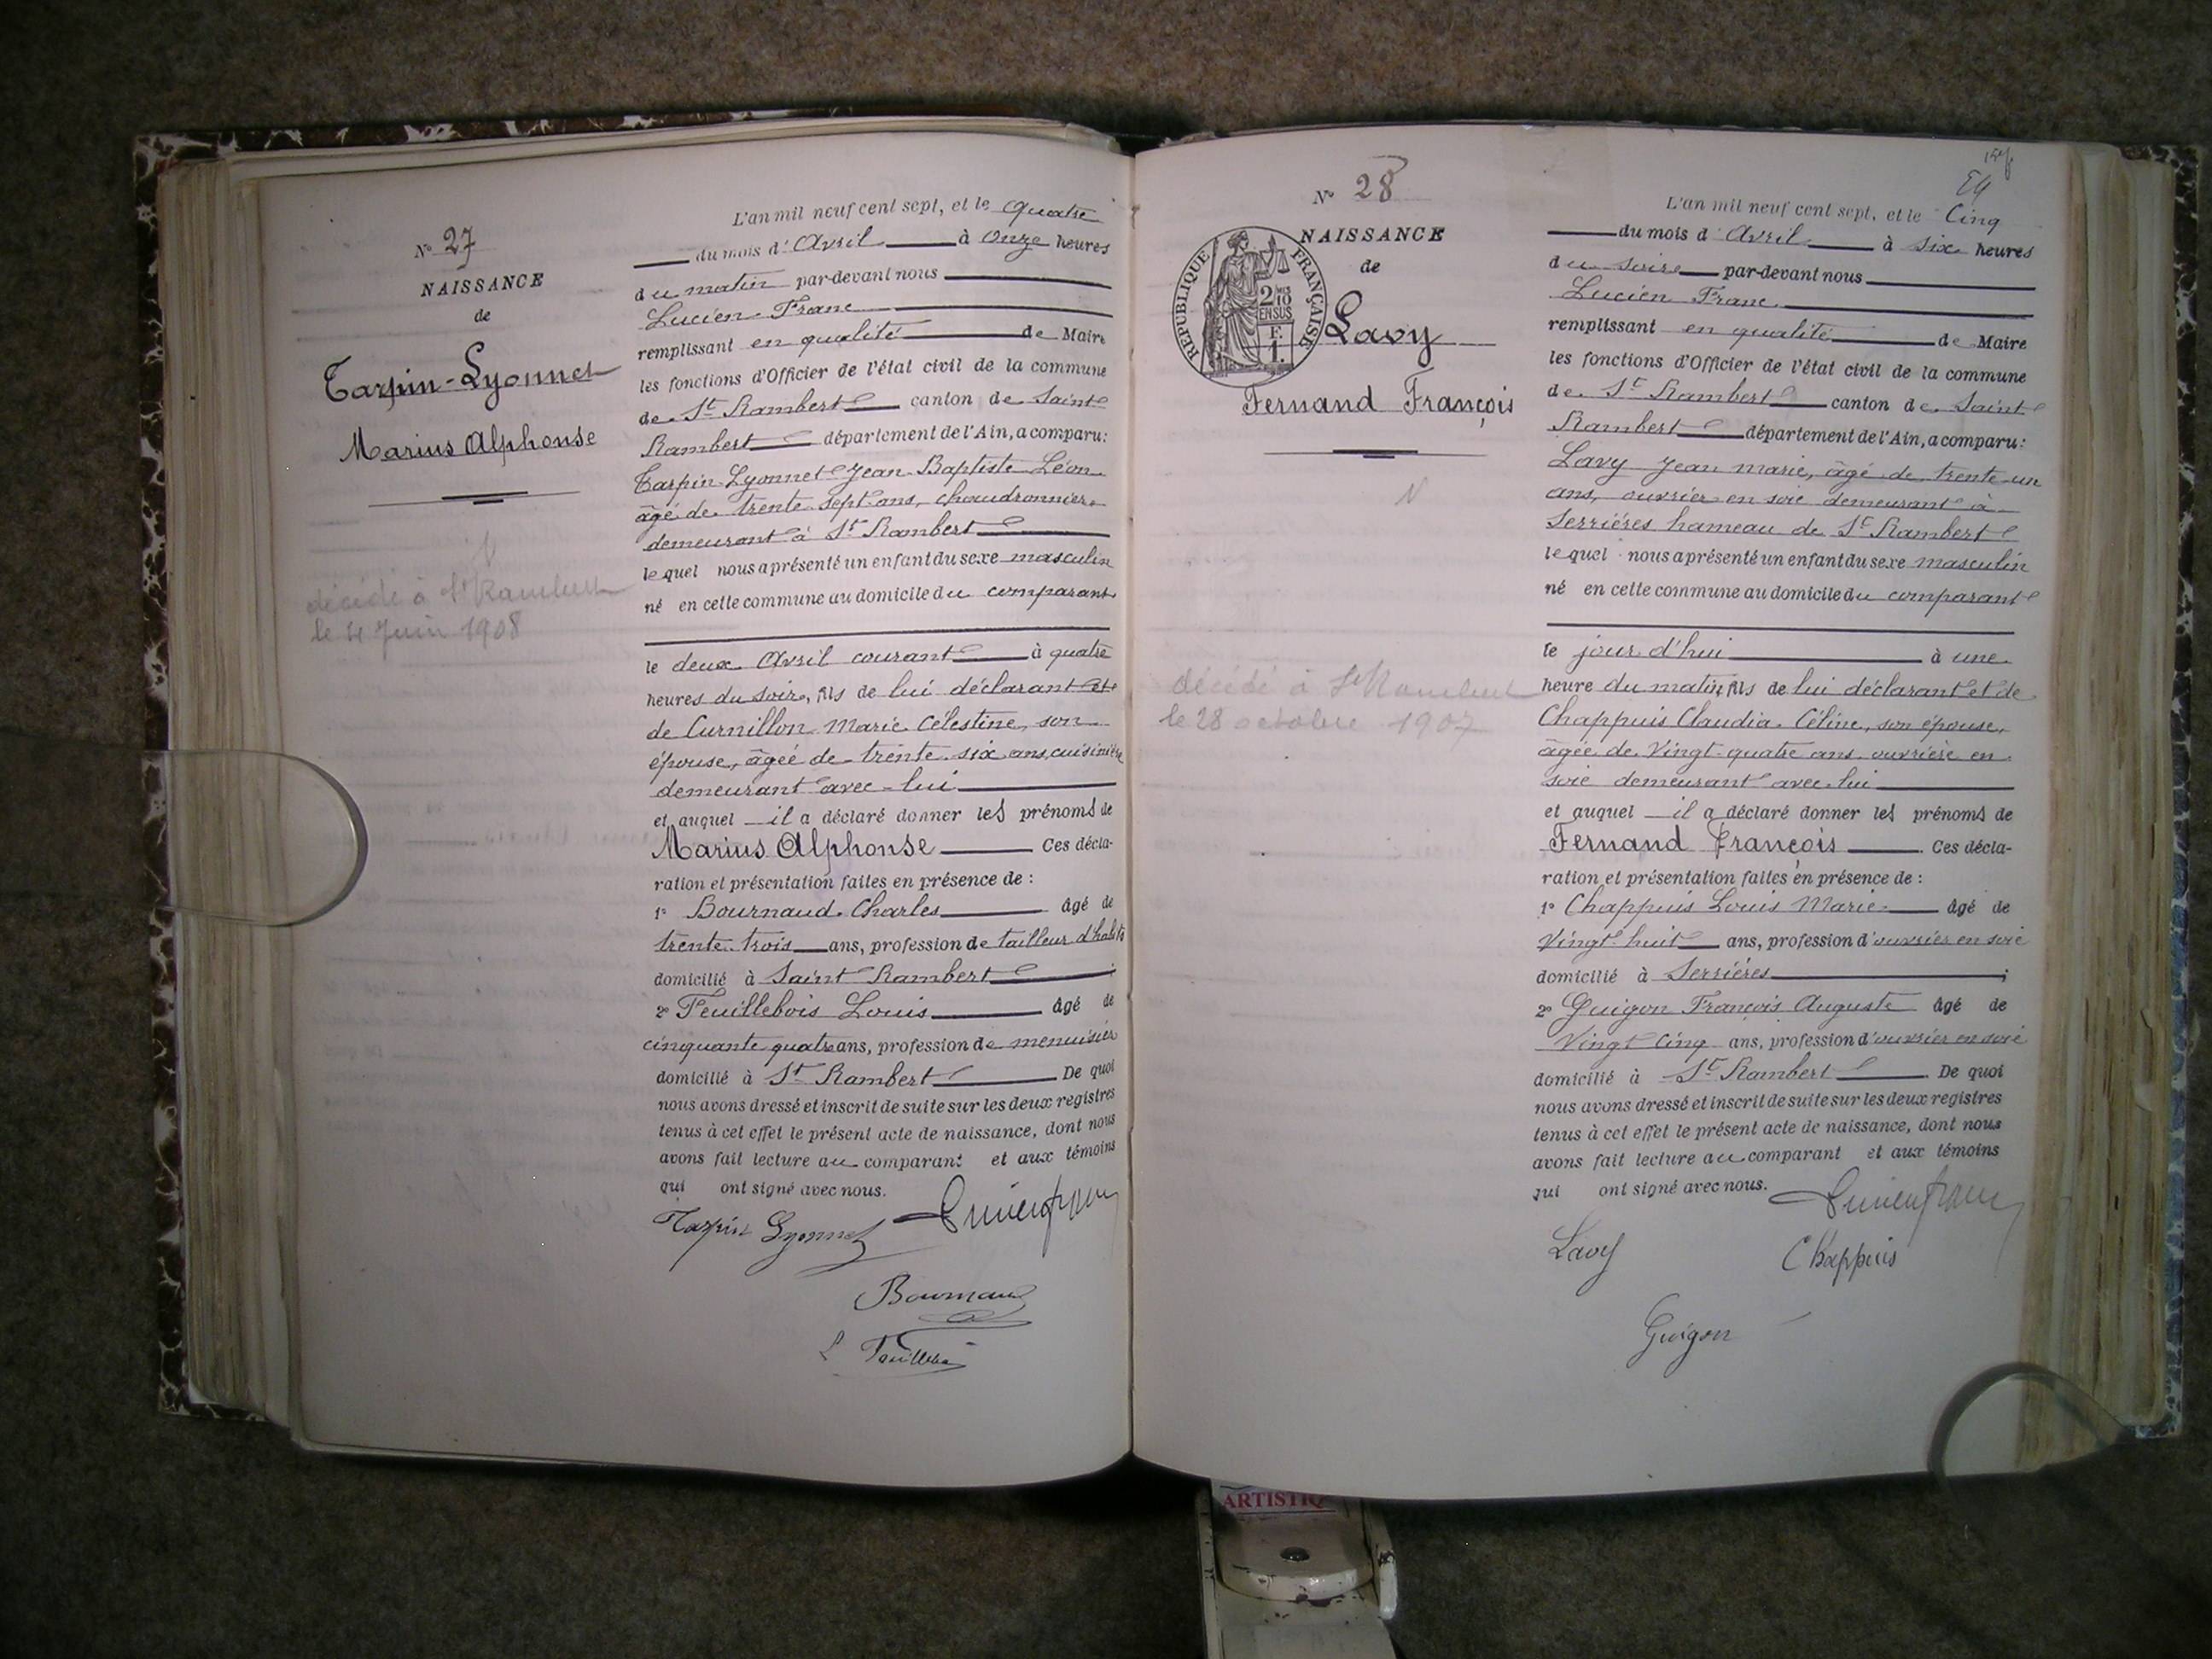 Nº 27
NAISSANCE
de
Tarpin-Lyonnet
Marius Alphonse
décédé à St Rambert
le 4 Juin 1908
L'an mil neuf cent sept, et le quatre
du mois d'Avril à onze heures
du matin par-devant nous
Lucien Franc
remplissant en qualité de Maire
les fonctions d'Officier de l'état civil de la commune
de St Rambert canton de Saint
Rambert département de l'Ain, a comparu:
Tarpin-Lyonnet Jean Baptiste Léon
âgé de trente sept ans, chaudronnier
demeurant à St Rambert
lequel nous a présenté un enfant du sexe masculin
né en cette commune au domicile du comparant
le deux Avril courant à quatre
heures du soir, fils de lui déclarant et
de Curnillon Marie Célestine, son
épouse, âgée de trente six ans, cuisinière
demeurant avec lui
et auquel il a déclaré donner les prénoms de
Marius Alphonse Ces décla-
ration et présentation faites en présence de :
1º Bournaud Charles âgé de
trente trois ans, profession de tailleur d'habits
domicilié à Saint Rambert ;
2º Feuillebois Louis âgé de
cinquante quatre ans, profession de menuisier
domicilié à St Rambert De quoi
nous avons dressé et inscrit de suite sur les deux registres
tenus à cet effet le présent acte de naissance, dont nous
avons fait lecture au comparant et aux témoins
qui ont signé avec nous.
Tarpin Lyonnet Lucien Franc
Bournaud
L Feuillebois
Nº 28
NAISSANCE
de
RÉPUBLIQUE FRANÇAISE
2/10 EN SUS
F. 1.
Lavy
Fernand François
N
décédé à St Rambert
le 28 octobre 1907
54
L'an mil neuf cent sept, et le Cinq
du mois d'Avril à six heures
du soir par-devant nous
Lucien Franc
remplissant en qualité de Maire
les fonctions d'Officier de l'état civil de la commune
de St Rambert canton de Saint
Rambert département de l'Ain, a comparu:
Lavy Jean Marie, âgé de trente un
ans, ouvrier en soie demeurant à
Serrières hameau de St Rambert
lequel nous a présenté un enfant du sexe masculin
né en cette commune au domicile du comparant
le jour d'hui à une
heure du matin, fils de lui déclarant et de
Chappuis Claudia Céline, son épouse,
âgée de Vingt quatre ans, ouvrière en
soie demeurant avec lui
et auquel il a déclaré donner les prénoms de
Fernand François Ces décla-
ration et présentation faites en présence de :
1º Chappuis Louis Marie âgé de
Vingt huit ans, profession d'ouvrier en soie
domicilié à Serrières ;
2º Guigon François Auguste âgé de
Vingt Cinq ans, profession d'ouvrier en soie
domicilié à St Rambert De quoi
nous avons dressé et inscrit de suite sur les deux registres
tenus à cet effet le présent acte de naissance, dont nous
avons fait lecture au comparant et aux témoins
qui ont signé avec nous.
Lucien Franc
Lavy Chappuis
Guigon
ARTISTIQ